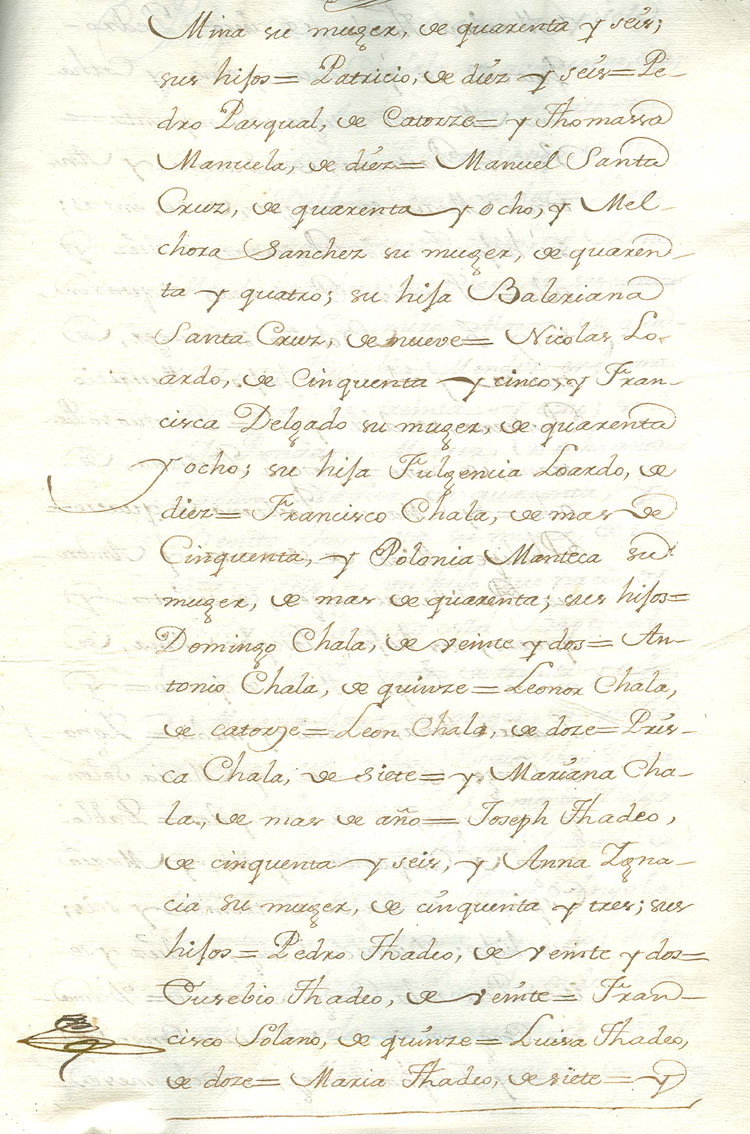 Mina su muger, de quarenta y seis;
sus hijos= Patricio, de diez y seis= Pe-
dro Pasqual, de Catorze= y Thomassa
Manuela, de diez= Manuel Santa
Cruz, de quarenta y ocho, y Mel-
chora Sanchez su muger, de quaren-
ta y quatro; su hija Baleriana
Santa Cruz, de nueve= Nicolas Lo-
ardo, de Cinquenta y cinco, y Fran-
cisca Delgado su muger, de quarenta
y ocho; su hija Fulgencia Loardo, de
diez= Francisco Chala, de mas de
Cinquenta, y Polonia Manteca su
muger, de mas de quarenta; sus hijos=
Domingo Chala, de veinte y dos= An-
tonio Chala, de quinze= Leonor Chala,
de catorze= Leon Chala, de doze= Pris-
ca Chala, de siete= y Mariana Cha-
la, de mas de año= Joseph Thadeo,
de cinquenta y seis, y Anna Igna-
cia su muger, de cinquenta y tres; sus
hijos= Pedro Thadeo, de veinte y dos=
Eusebio Thadeo, de veinte= Fran-
cisco Solano, de quinze= Luisa Thadeo,
de doze= Maria Thadeo, de siete= y